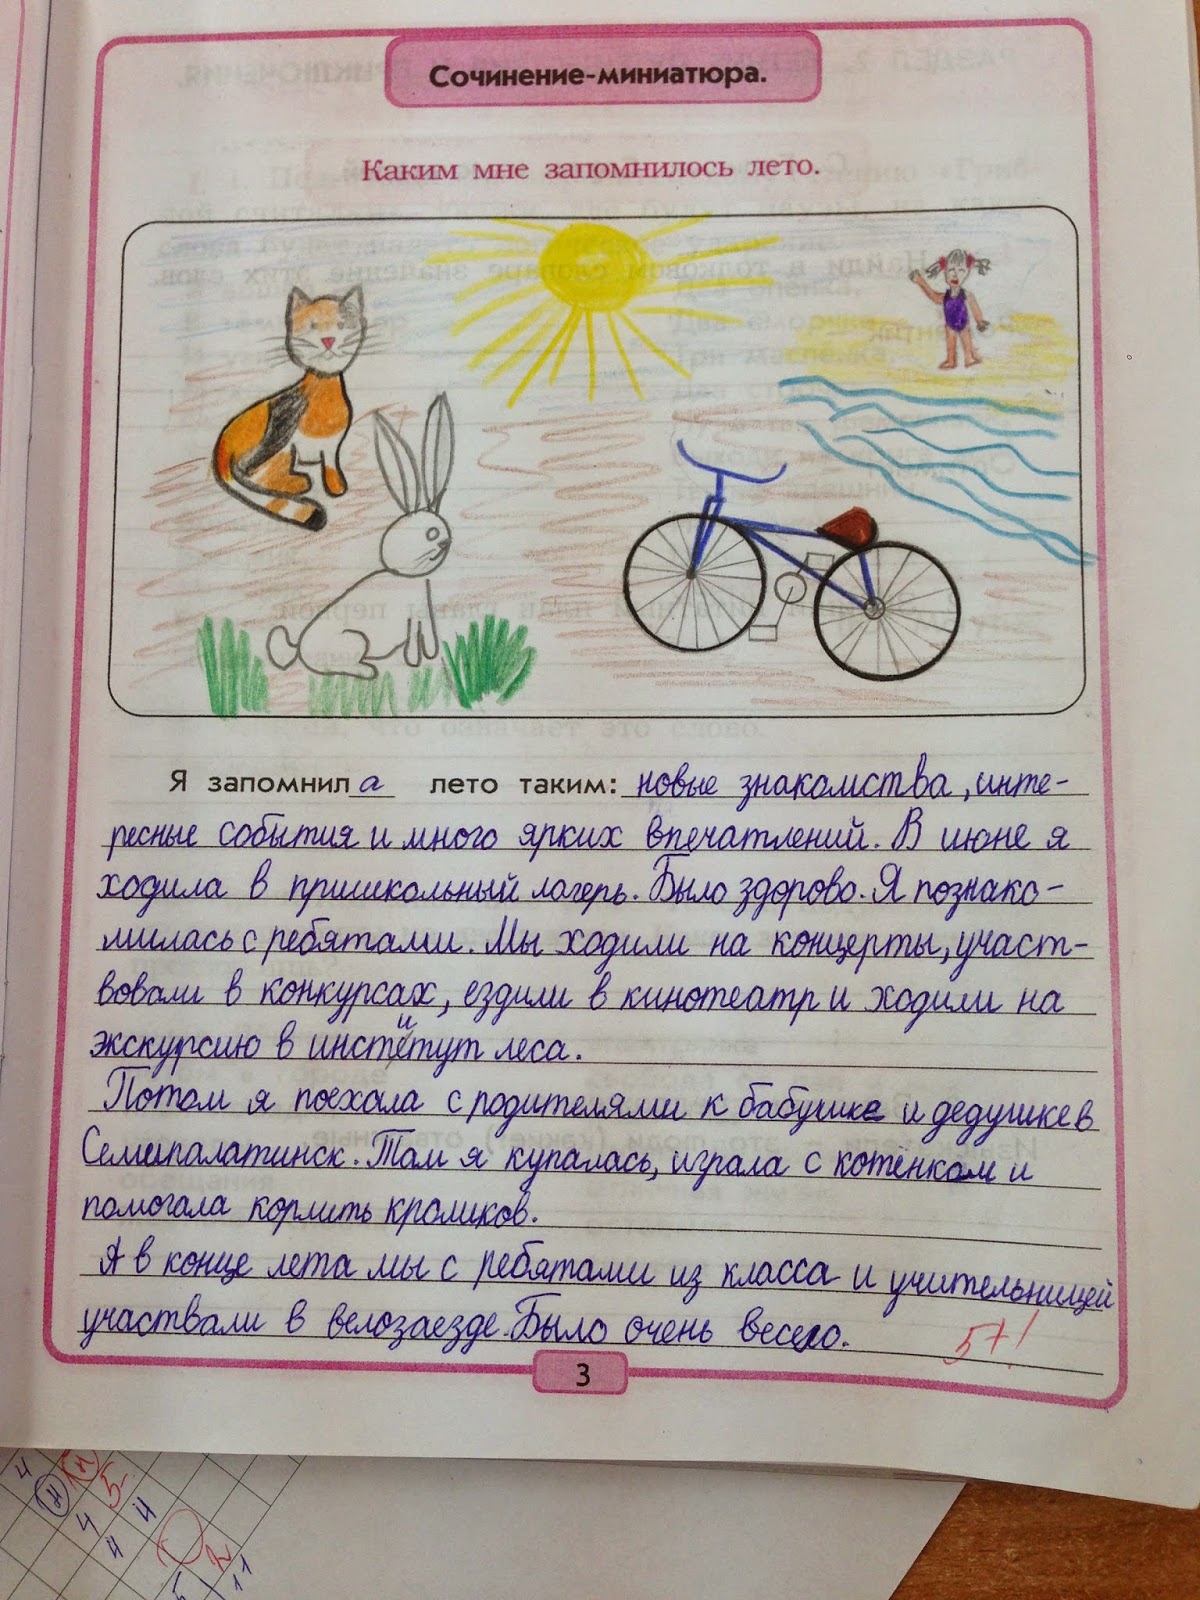 Сочинение-миниатюра.
Каким мне запомнилось лето.
Я запомнила лето таким: новые знакомства, инте-
ресные события и много ярких впечатлений. В июне я
ходила в пришкольный лагерь. Было здорово. Я познако-
милась с ребятами. Мы ходили на концерты, участ-
вовали в конкурсах, ездили в кинотеатр и ходили на
экскурсию в институт леса.
Потом я поехала с родителями к бабушке и дедушке в
Семипалатинск. Там я купалась, играла с котёнком и
помогала кормить кроликов.
А в конце лета мы с ребятами из класса и учительницей
участвали в велозаезде. Было очень весело.
5+!
3